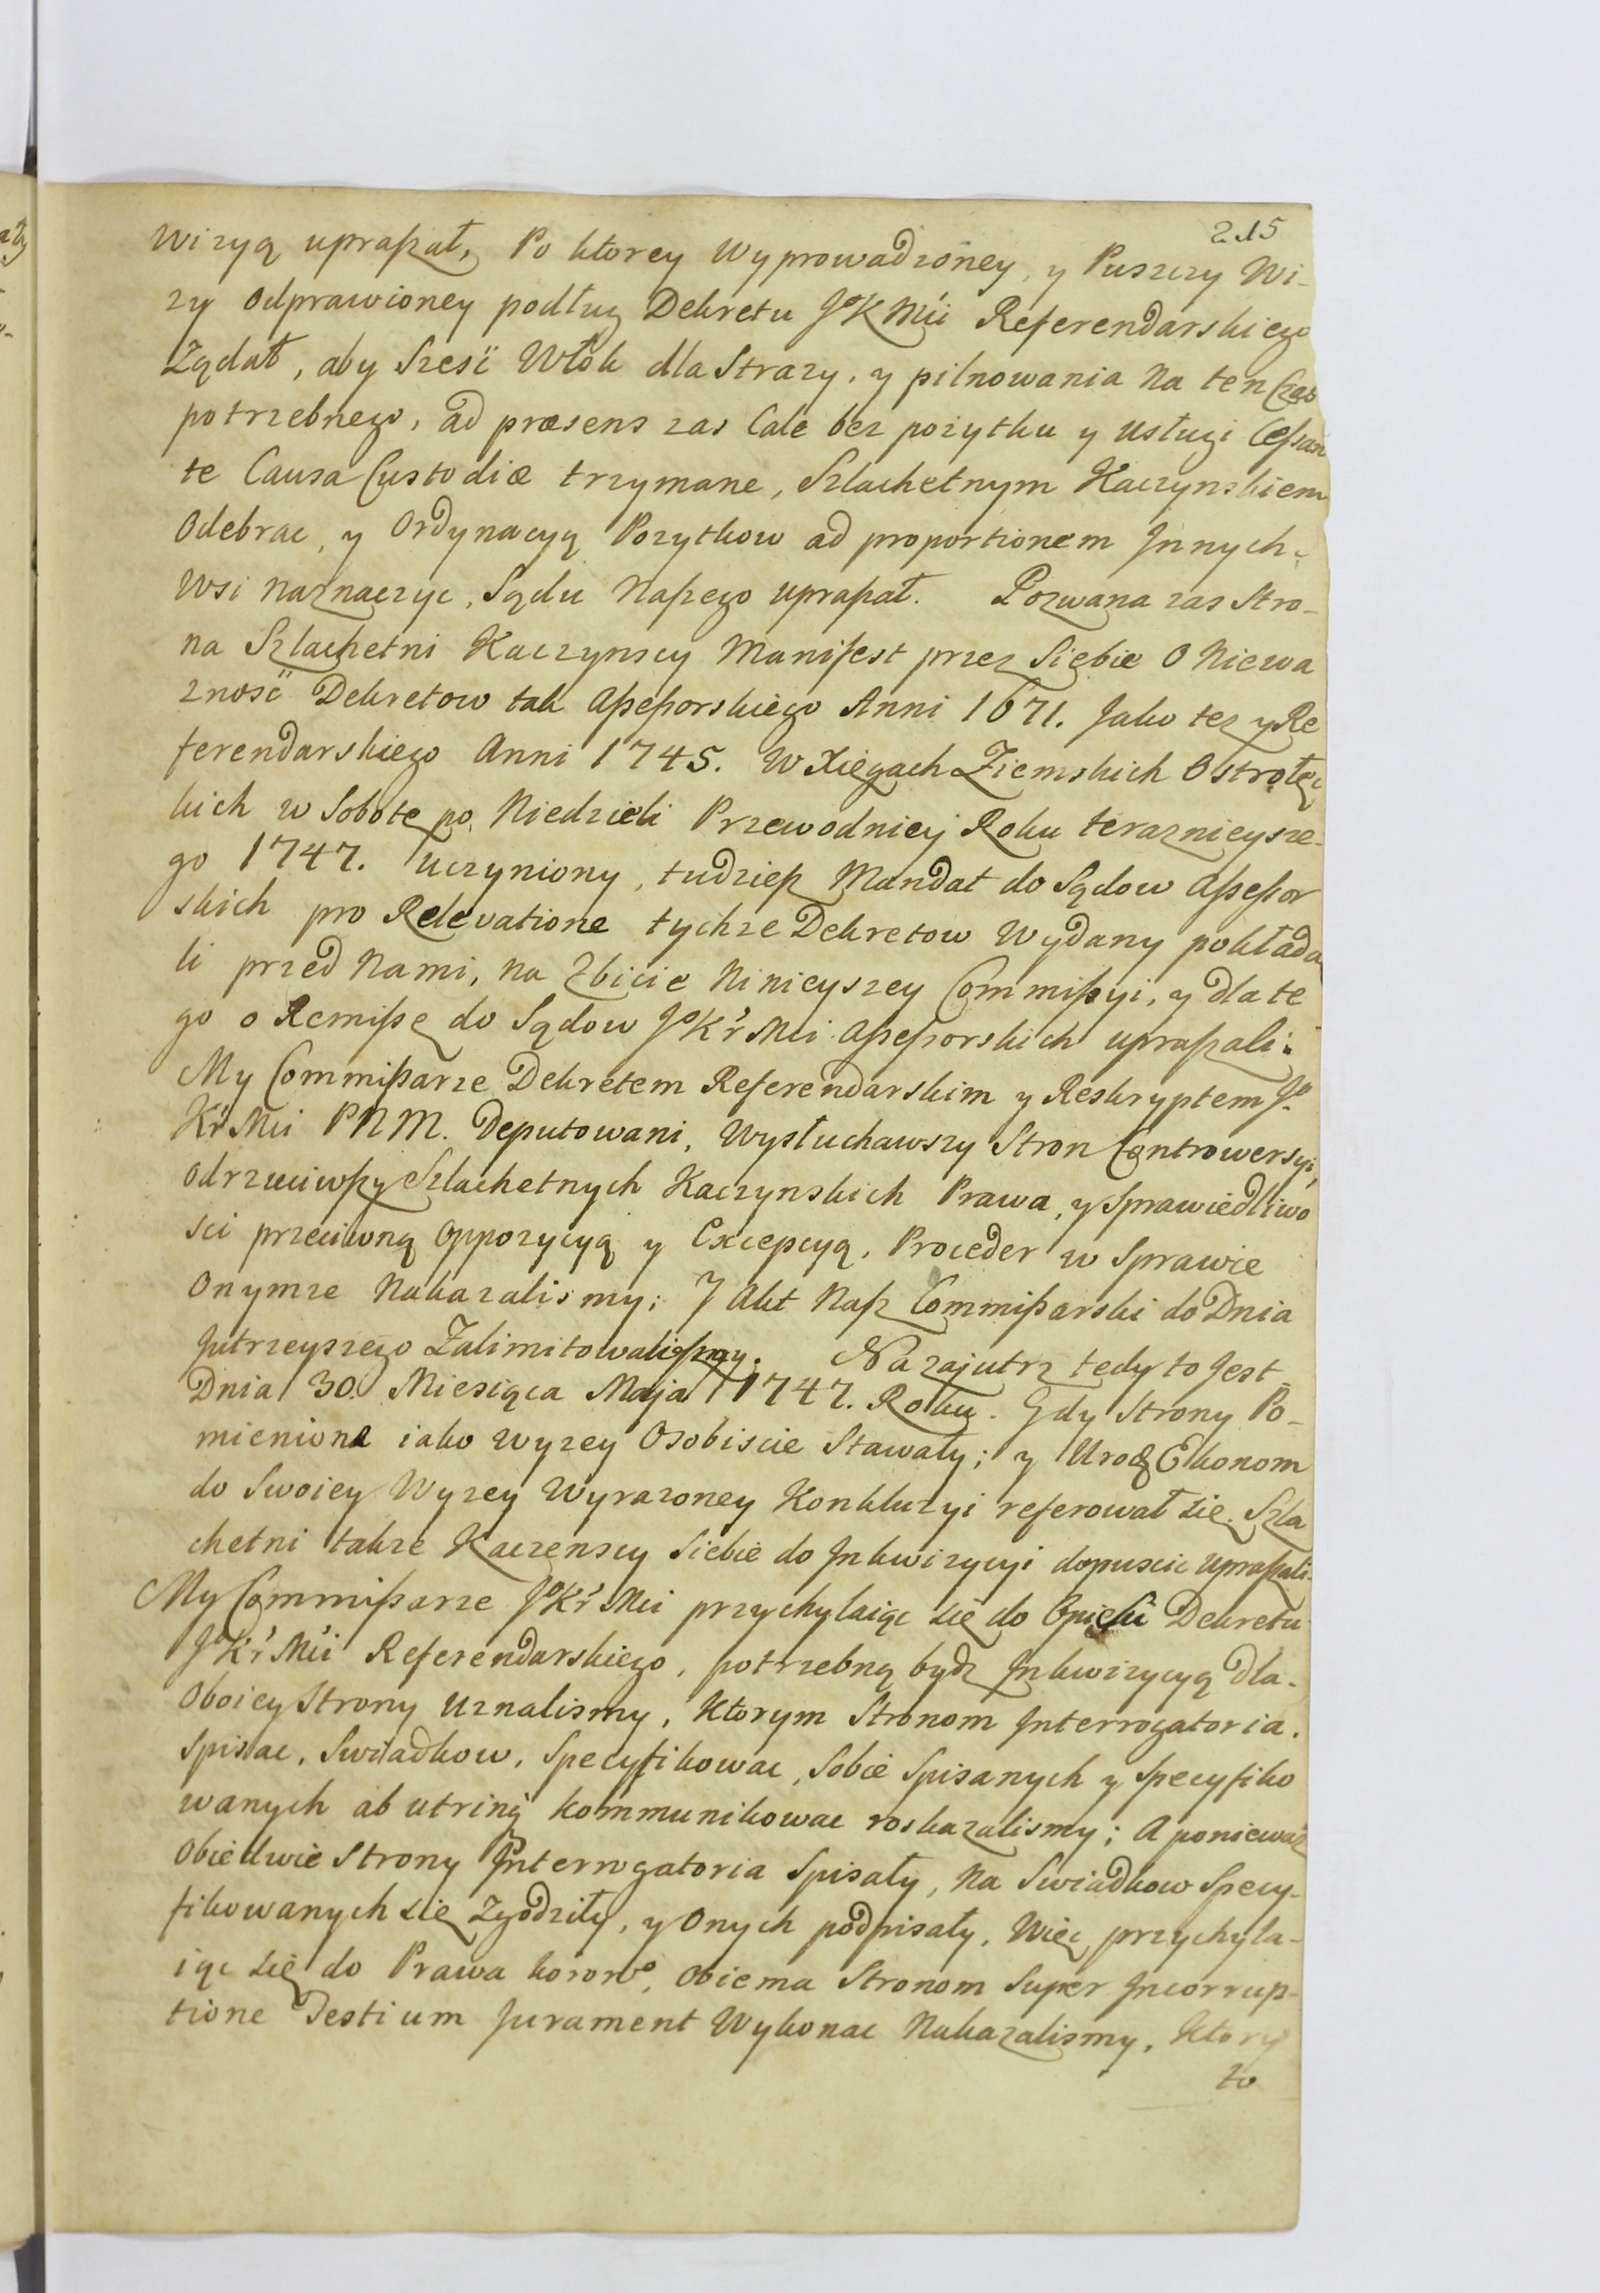 215
wizyą upraszał, Po ktorey wyprowadzoney, y Puszczy Wi-
zy odprawioney podług Dekretu JoKMći Referendarskiego
Ządał, aby Szesć Włok dla Strazy, y pilnowania na ten Czas
potrzebnego, ad præsens zas Cale bez pozytku y usługi Cessan
te Causa Custodiæ trzymane, Szlachetnym Kaczynskiem
Odebrac, y Ordynacyą Pozytkow ad proportionem Jnnych
Wsi naznaczyc, Sądu Naszego upraszał. Pozwana zas Stro-
na Szlachetni Kaczynscy Manifest przez Siebie o Niewa
znosć Dekretow tak Assessorskiego Anni 1671. Jako tez y Re
ferendarskiego Anni 1745. W Xięgach Ziemskich Ostrołęc
kich w Sobotę po Niedzieli Przewodniey Roku terazniejsze-
go 1747. uczyniony, tudziesz Mandat do Sądow Assessor
skich pro Relevatione tychze Dekretow Wydany pokłada
li przed Nami, na Zbicie Ninieyszey Commissyi, y dla te
go o Remissę do Sądow JoKr Mci Assessorskich upraszali.
My Commissarze Dekretem Referendarskim y Reskryptem Jo
Kr Mci PNM. Deputowani, Wysłuchawszy Stron Controwersyi,
odrzuciwszy Szlachetnych Kaczynskich Prawa, y Sprawiedliwo
sci przeciwną Oppozycyą y Excepcyą, Proceder w Sprawie
Onymze Nakazalismy; J Akt Nasz Commissarski do Dnia
Jutrzeyszego Zalimitowalismy. Nazajutrz tedy to Jest
Dnia 30. Miesiąca Maja 1747. Roku. Gdy Strony Po-
mienione iako wyzey Osobiscie Stawały; y Urodz Ekonom
do Swoiey Wyzey Wyrazoney Konkluzyi referował się. Szla
chetni takze Kaczenscy Siebie do Jnkwizycyi dopuscic upraszali.
My Commissarze JoKr Mci przychylaiąc się do Opieki Dekretu
JoKr Mći Referendarskiego, potrzebną bydz Jnkwizycyą dla
Oboiey Strony uznalismy, Ktorym Stronom Jnterrogatoria
Spisac, Swiadkow, Specyfikowac, Sobie Spisanych y Specyfiko
wanych ab utrinq kommunikowac roskazalismy; A poniewaz
Obiedwie Strony Jnterrogatoria Spisały, na Swiadkow Specy-
fikowanych się Zgodziły, y Onych podpisały, Więc przychyla-
iąc się do Prawa koronº, obiema Stronom Super Jncorrup-
tione Testium Jurament Wykonac Nakazalismy, Ktory
to